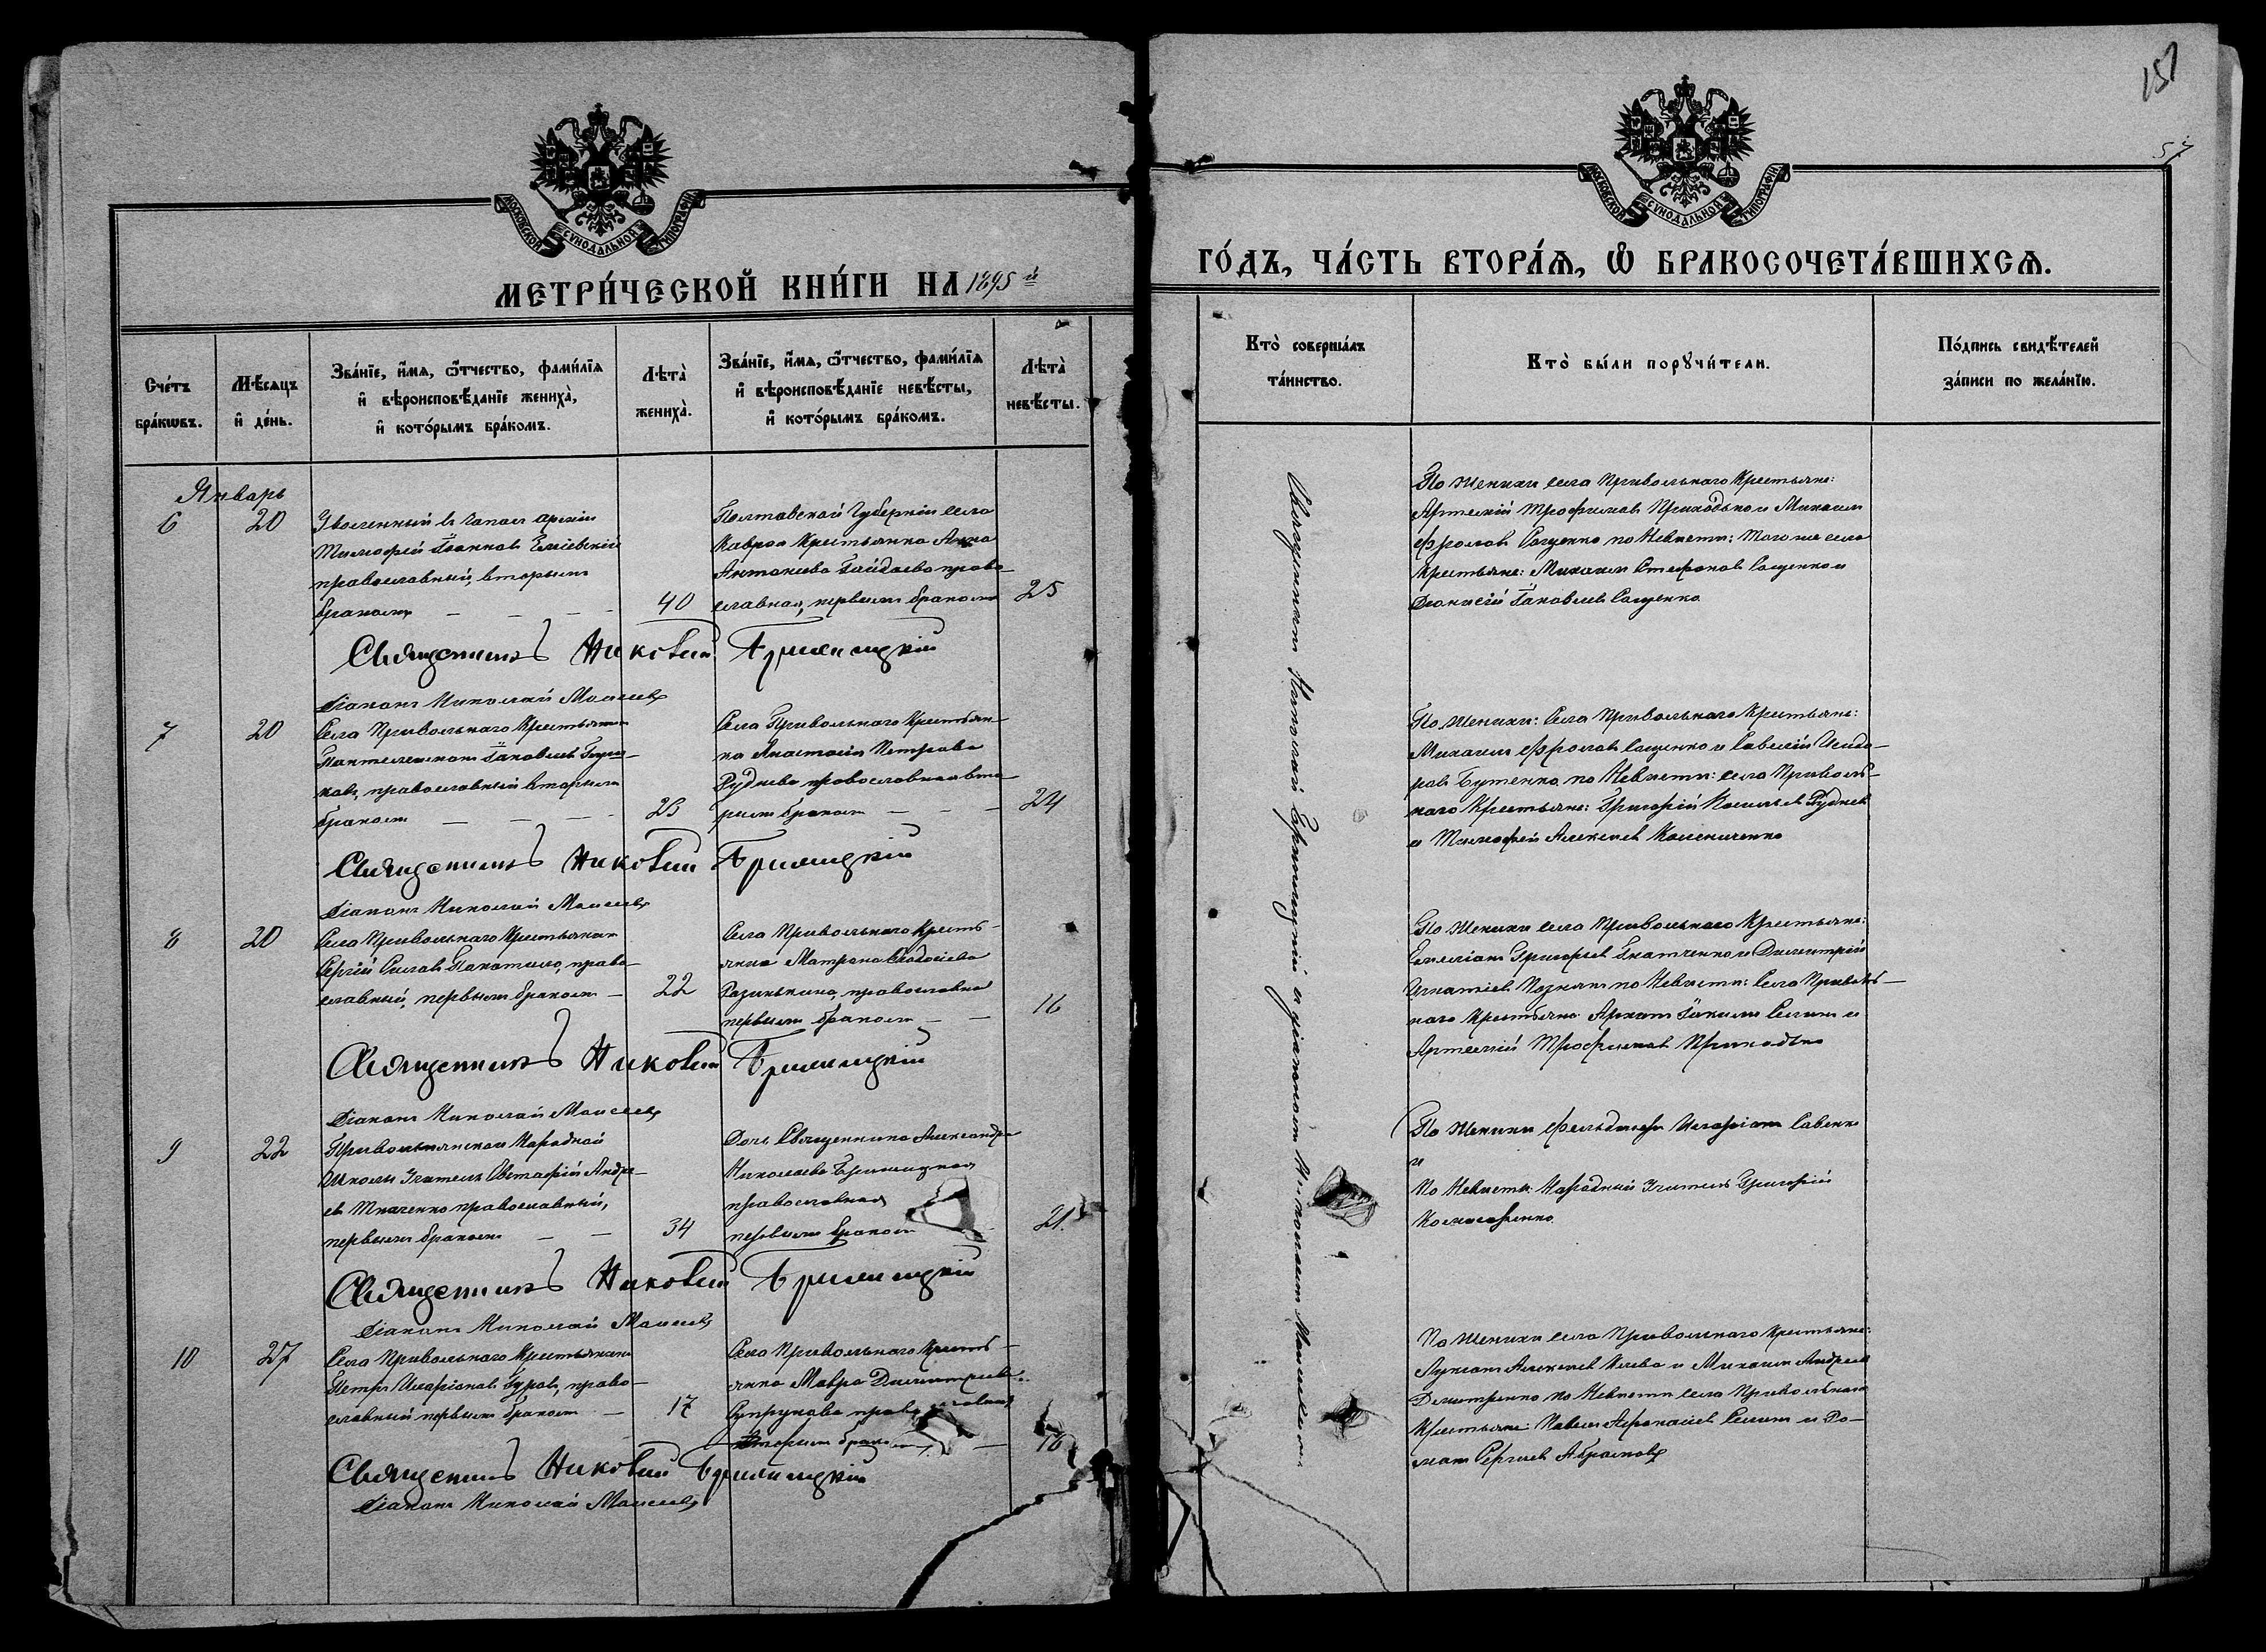 151
57
МОСКОВСКОЙ СѴНОДАЛЬНОЙ ТИПОГРАФІИ
МОСКОВСКОЙ СѴНОДАЛЬНОЙ ТИПОГРАФІИ
МЕТРИ́ЧЕСКОЙ КНИ́ГИ НА 1895 й
ГО́ДЪ, ЧА́СТЬ ВТОРА́Ѧ, Ѽ БРАКОСОЧЕТА́ВШИХСѦ.
Сче́тъ бра́кѡвъ.
Мѣ́сѧцъ и҆ де́нь.
Зва́нїе, и҆́мѧ, ѻ҆́тчество, фами́лїѧ
и҆ вѣроисповѣ́данїе жениха̀,
и҆ кото́рымъ бра́комъ.
Лѣта̀ жениха̀.
Зва́нїе, и҆́мѧ, ѻ҆́тчество, фами́лїѧ
и҆ вѣроисповѣ́данїе невѣ́сты,
и҆ кото́рымъ бра́комъ.
Лѣта̀ невѣ́сты.
Кто̀ соверша́лъ та́инство.
Кто̀ бы́ли порꙋчи́тели.
По́дпись свидѣ́телей
за́писи по жела́нїю.
Январь
6
20
Уволенный въ запасъ арміи
Тимофей Іоанновъ
православный, вторымъ
бракомъ
40
Полтавской Губерніи села
Крестьянка Анна
Антоніева Гайдаева право-
славная, первымъ бракомъ
25
По Женихѣ села Привольнаго Крестьяне:
Артемій Трофимовъ Приходько и Михаилъ
Фроловъ Сащенко по Невѣстѣ: того же села
Крестьяне: Михаилъ Стефановъ Сащенко и
Діонисій Іаковлевъ Сащенко
Священникъ Николай
Діаконъ Николай Моисеевъ
7
20
Села Привольнаго Крестьянинъ
Пантелеимонъ Іаковлевъ
православный вторымъ
бракомъ
25
Села Привольнаго Крестьян-
ка Анастасія Петрова
Руднева православная вто-
рымъ бракомъ
24
По Женихѣ: Села Привольнаго Крестьяне:
Михаилъ Фроловъ Сащенко и Савелій Исидо-
ровъ Бутенко по Невѣстѣ: села Приволь-
наго Крестьяне: Григорій Васильевъ Рудневъ
и Тимофей Алексіевъ
Священникъ Николай
Діаконъ Николай Моисеевъ
8
20
Села Привольнаго Крестьянинъ
Сергій право-
славный, первымъ бракомъ
22
Села Привольнаго Кресть-
янка Матрона Феодосіева
православная
первымъ бракомъ
16
По Женихѣ села Привольнаго Крестьяне:
Емеліанъ Григорьевъ Игнатченко и Димитрій
Игнатіевъ Познякъ по Невѣстѣ: Села Приволь-
наго Крестьяне
Артемій Трофимовъ Приходько
Священникъ Николай
Діаконъ Николай Моисеевъ
9
22
Привольнянской Народной
Школы Учитель Евстафій Андре-
евъ Ткаченко православный,
первымъ бракомъ
34
Дочь Священника Александра
Николаева
православная
первымъ бракомъ
21
По Женихѣ фельдшеръ Иларіонъ Савенко
и
По Невѣстѣ Народный Учитель Григорій
Священникъ Николай
Діаконъ Николай Моисеевъ
10
27
Села Привольнаго Крестьянинъ
Петръ Иларіоновъ Гуровъ, право-
славный первымъ бракомъ
17
Села Привольнаго Кресть-
янка Мавра Димитріева
Супрунова православная
бракомъ
16
По Женихѣ села Привольнаго Крестьяне:
Лукіанъ Алексіевъ и Михаилъ Андреевъ
Дмитренко по Невѣстѣ села Привольнаго
Крестьяне: Павелъ Афанасіевъ и Ро-
манъ Сергіевъ Абрамовъ
Священникъ Николай
Діаконъ Николай Моисеевъ
Священникъ Николай и діаконъ Николаемъ